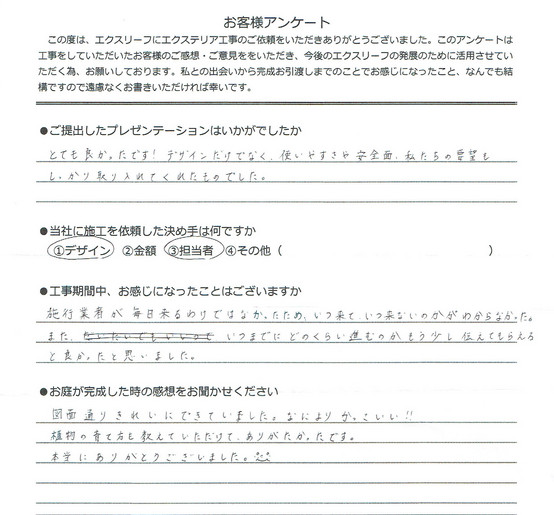 お客様アンケート
この度は、エクスリーフにエクステリア工事のご依頼をいただきありがとうございました。このアンケートは
工事をしていただいたお客様のご感想・ご意見をいただき、今後のエクスリーフの発展のために活用させてい
ただく為、お願いしております。私との出会いから完成お引渡しまでのことでお感じになったこと、なんでも結
構ですので遠慮なくお書きいただければ幸いです。
●ご提出したプレゼンテーションはいかがでしたか
とても良かったです! デザインだけでなく、使いやすさや安全面、私たちの要望も
しっかり取り入れてくれたものでした。
●当社に施工を依頼した決め手は何ですか
①デザイン ②金額 ③担当者 ④その他（ ）
●工事期間中、お感じになったことはございますか
施行業者が毎日来るわけではなかったため、いつ来て、いつ来ないのかがわからなかった。
また、いつまでにどのくらい進むのかもう少し伝えてもらえる
と良かったと思いました。
●お庭が完成した時の感想をお聞かせください
図面通りきれいにできていました。なによりかっこいい!!
植物の育て方も教えていただけて、ありがたかったです。
本当にありがとうございました。